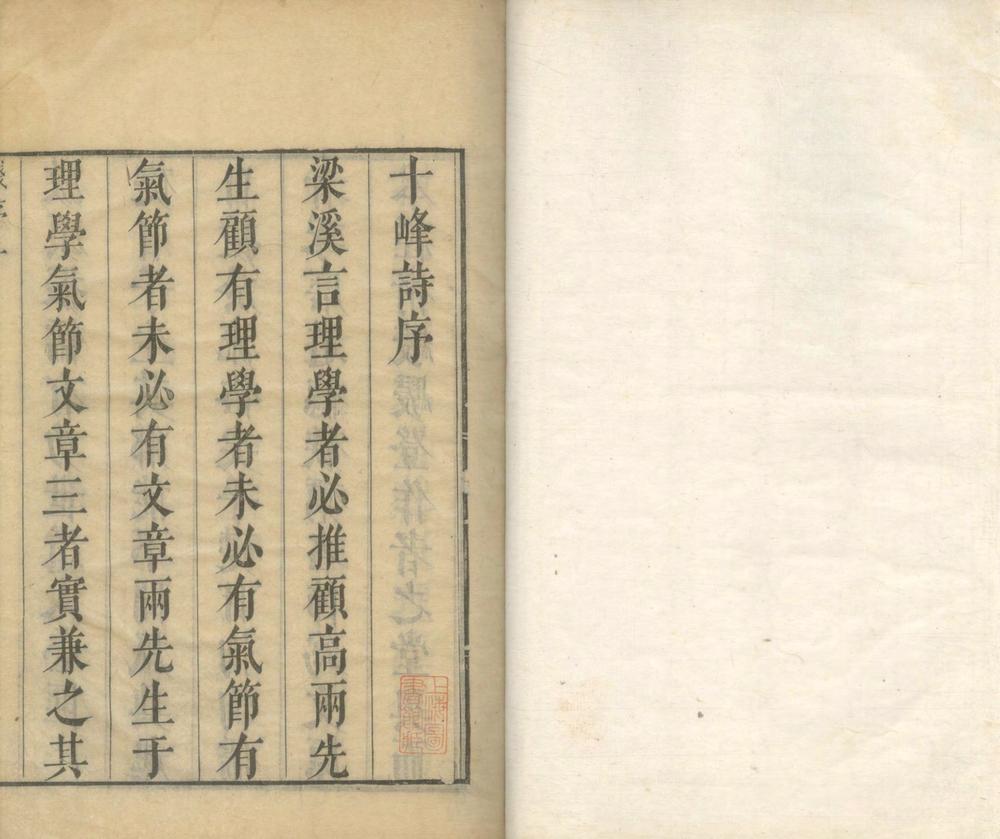 十峰詩序
梁溪言理學者必推顧高兩先
生顧有理學者未必有氣節有
氣節者未必有文章兩先生于
理學氣節文章三者實兼之其